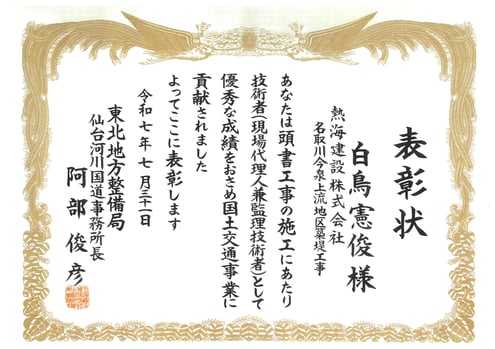 表彰状
名取川今泉上流地区築堤工事
熱海建設株式会社
白鳥憲俊様
あなたは頭書工事の施工にあたり
技術者(現場代理人兼監理技術者)として
優秀な成績をおさめ国土交通事業に
貢献されました
よってここに表彰します
令和七年七月三十一日
東北地方整備局
仙台河川国道事務所長
阿部俊彦